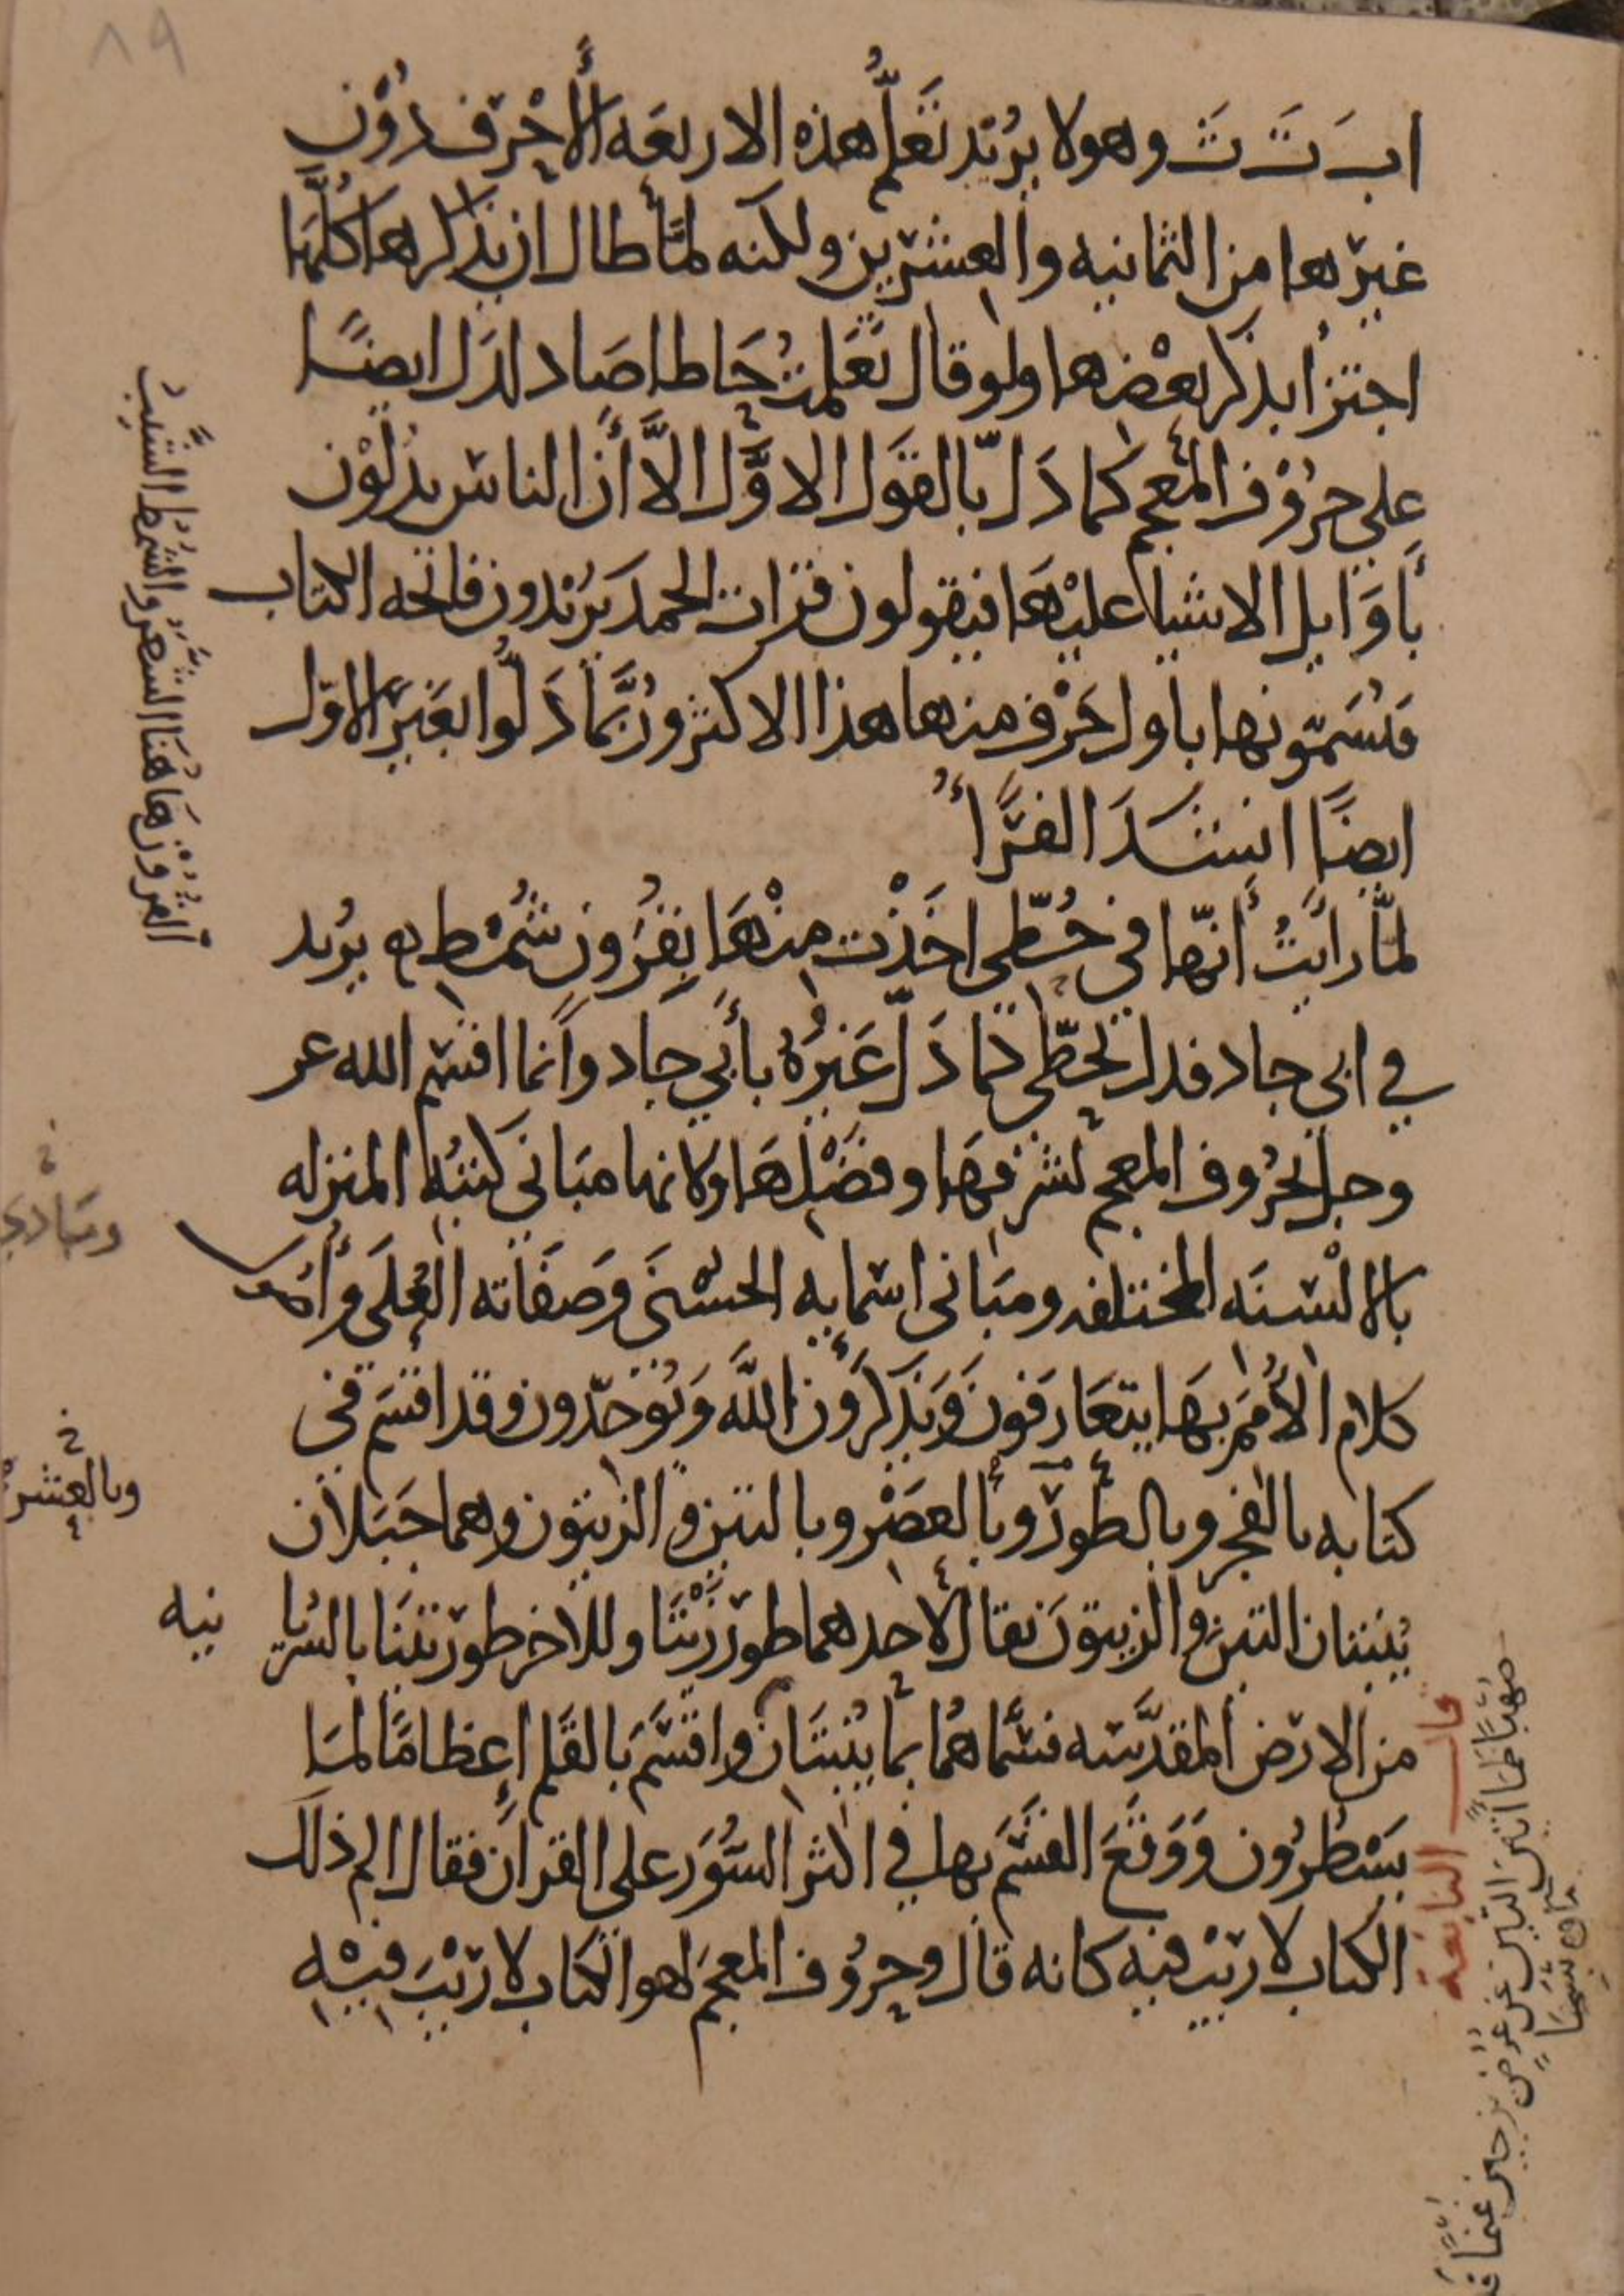 ٨٩
ا ب َ تَ ثَ وهو لا يُريد تَعَلُّم هذه الاربعَه الأَحْرُف دُوْن
غيرها من الثمانيه والعشرين ولكنه لمَّا طال ان يذكرها كُلَّهَا
اجتزأ بذكر بعْضها ولو قال تعَلمتُ حَا طا صَاد لدَل ايضًا
على حرُوْف المعجم كما دَلّ بالقَول الاوَّل الاَّ أنَّ الناس يدُلّوْن
بأوَايل الاشيا عليْهَا فيقولون قرات الحمد يُرَيْدون فاتحه الكتاب
فيُسَمّونها باول حَرْف منها هذا الاكثر ورُبَّمَا دَلُّوا بغَير الاوّل
ايضًا انشدَ الفرَّاءُ
لمَّا رأيتُ أنّها في حُطّي اخَذْت منْهَا بِقُرُونٍ شُمْط ۞ يُريد
في ابي جاد فدل بحُطّي كما دَلّ غَيرُهُ بأبي جاد وانما اقسم الله عز
وجل بحُروف المعجم لشرفهَا وفضْلهَا ولانها مبَاني كتبُه المنزله
بالالْسنَه المختلفه ومبَاني اسمايه الحسْنى وصفَاته العُلَى وأُصُول
كلام الأُمَمِ بهَا يتعَارَفونَ وَيَذكرُون اللَّهَ وَيُوَحّدون وقد اقسَم في
كتابه بالفجر وبالطور وبالعصْر وبالتين والزيتون وهما جَبَلان
يُنبتان التين والزيتونَ يقال لاحدهما طور زَيْتَا وللاخر طور تينَا بالسُريا نيه
من الارض المقدَّسه فسَمَّاهُمَا بما يُنْبتَان واقسَمَ بالقَلم إعظامًا لمَا
يَسْطرُون وَوَقَعَ القسَم بها في اكثر السُّوَر على القرآن فقال الم ذلك
الكتاب لا ريبَ فيه كانه قال وحرُوف المعجَم لهو الكتاب لا رَيْبَ فيْه
القُرُوْن هَاهُنَا الشعَر والشُمط الشَّيب
خ
ومبَادي
خ
وبالعشر
قال النابغة
صُهْبًا ظماءً اتينَ التينَ عن عُرُضٍ يزجين غيمًا
ماؤه شبِمَا